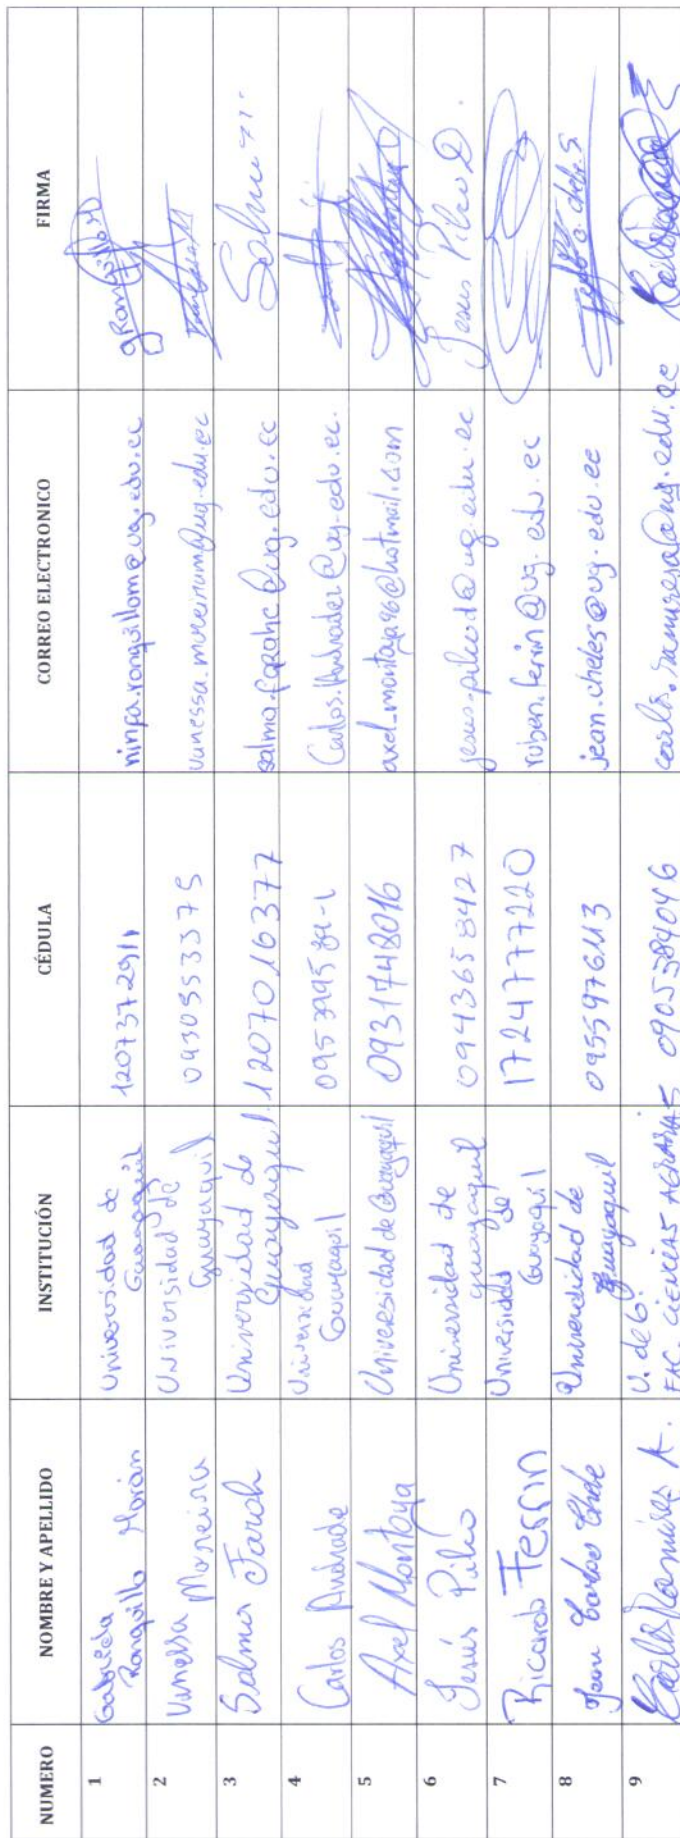 NUMERO NOMBRE Y APELLIDO INSTITUCIÓN CÉDULA CORREO ELECTRONICO FIRMA
1 Gabriela Ronquillo Morán Universidad de Guayaquil 1207372911 ninfa.ronquillom@ug.edu.ec gRonquilloM
2 Vanessa Moreira Universidad de Guayaquil 0930953375 vanessa.moreiram@ug.edu.ec
3 Salma Farah Universidad de Guayaquil. 1207016377 salma.farahc@ug.edu.ec
4 Carlos Andrade Universidad Guayaquil Carlos.Andrader@ug.edu.ec.
5 Axel Montoya Universidad de Guayaquil 0931748016 axel_montoya96@hotmail.com
6 Jesús Pilco Universidad de Guayaquil 0943658427 jesus.pilcod@ug.edu.ec Jesus Pilco D.
7 Ricardo Ferrin Universidad de Guayaquil 1724777220 ruben.ferrin@ug.edu.ec
8 Jean Carlos Chele Universidad de Guayaquil jean.cheles@ug.edu.ec
9 Carlos Ramírez A. U. de G. FAC. CIENCIAS AGRARIAS 0905384046 carlos.ramireza@ug.edu.ec